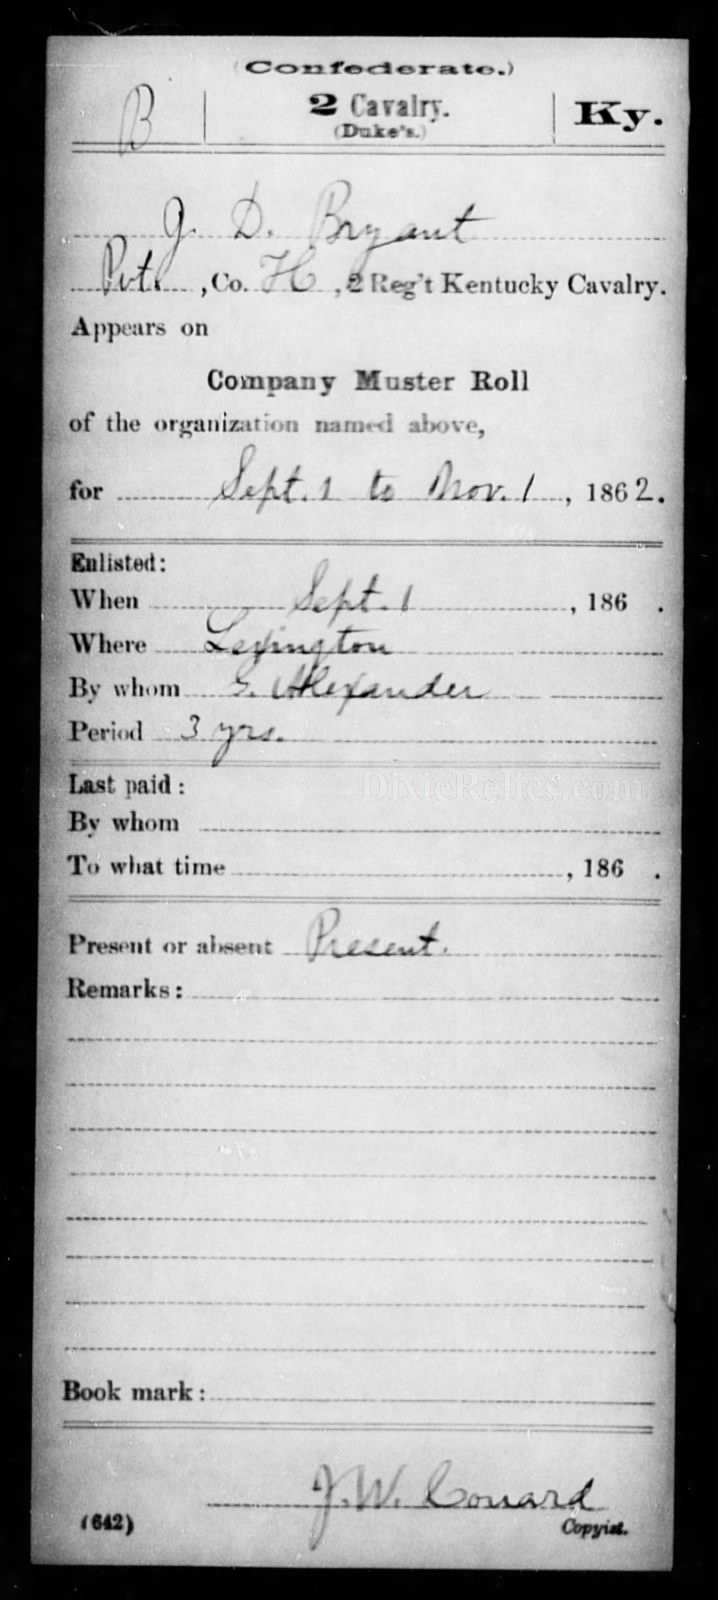 (Confederate.)
B 2 Cavalry. Ky.
(Duke's.)
J. D. Bryant
Pvt., Co. H, 2 Reg't Kentucky Cavalry.
Appears on
Company Muster Roll
of the organization named above,
for Sept. 1 to Nov. 1, 1862.
Enlisted:
When Sept. 1, 186 .
Where Lexington
By whom S. Alexander
Period 3 yrs.
Last paid:
DixieRelics.com
By whom
To what time , 186 .
Present or absent Present.
Remarks:
Book mark:
J. W. Conard
(642) Copyist.